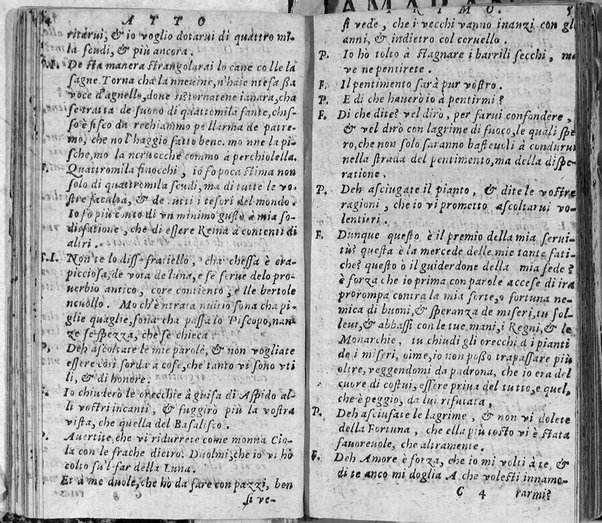 ATTO
ritarui, & io voglio dotarui di quattro mi
la scudi, & più ancora.
De sta manera strangolarai lo cane co lle la
sagne. Torna cha la nneuine, n'haie ntesa sta
voce d'agnello, doue si tornatene ianara, cha
se tratta de fuono di quattomila sante, chis-
so è fisco da rechiammo pe llarma de patre-
mo, che no l'haggio fatto bene. mo nne la pi-
sche, mo la ncruocche commo a perchiolella.
Quattromila finocchi, io sopoca stima non
solo di quattromila scudi, ma di tutte le vo
stre facultà, & de tutti i tesori del mondo.
Io sò più conto di vn minimo gusto e mia so-
disfatione, che di essere Reina à contenti di
altri.
Non te lo diss. fratiello, cha chessa è era-
picciosa, de vota de luna, e se serue delo pro-
uerbio antico, core contiento, e lle bertole
ncuollo. Mo ch'è ntrata nuitio sona cha pi-
glie quaglie, sona cha passa lo Piscopo, nan-
ze se spezza, che se chieca.
Deh ascoltate le mie parole, & non vogliate
essere così sorda à cose, che tanto vi sono vti
li, & di honore.
Io chiuderò le orecchie à guisa di Aspido al-
li vostri incanti, & fuggirò più la vostra
vista, che quella del Basalisco.
Auertite, che vi ridurrete come monna Cio
la con le frache dietro. Duolmi, che io vi hò
colto su'l far della Luna.
Et à me duole, che hò da fare con pazzi, ben
si ve-
IMO. 5
si vede, che i vecchi vanno inanzi con gli
anni, & indietro col ceruello.
P. Io hò tolto à stagnare i barrili secchi, mo
ve ne pentirete.
F. Il pentimento sarà pur vostro.
P. E di che hauerò io à pentirmi?
F. Di che dite? vel dirò, per farui confondere,
& vel dirò con lagrime di fuoco, le quali spe
ro, che non solo saranno basteuoli à condurui
nella strada del pentimento, ma della dispe-
ratione.
P. Deh asciugate il pianto, & dite le vostre
ragioni, che io vi prometto ascoltarui vo-
lentieri.
F. Dunque questo è il premio della mia serui-
tù? questa è la mercede delle mie tante fati-
che? questo è il guiderdone della mia fede?
è forza che io prima con parole accese di ira
prorompa contra la mia sorte, o fortuna ne-
mica di buoni, & speranza de miseri, tu sol-
leui, & abbassi con le tue mani, i Regni, & le
Monarchie, tu chiudi gli orecchi à i pianti
de i miseri, oime, io non posso trapassare più
oltre, veggendomi da padrona, che io era del
cuore di costui, essere priua del tutto, e quel,
che è peggio, da lui rifiutata,
P. Deh asciugate le lagrime, & non vi dolete
della Fortuna, che ella più tosto vi è stata
fauoreuole, che altramente.
F. Deh Amore è forza, che io mi volti à te, &
di te anco mi doglia. A che volesti innamo-
C 4 rarmi?